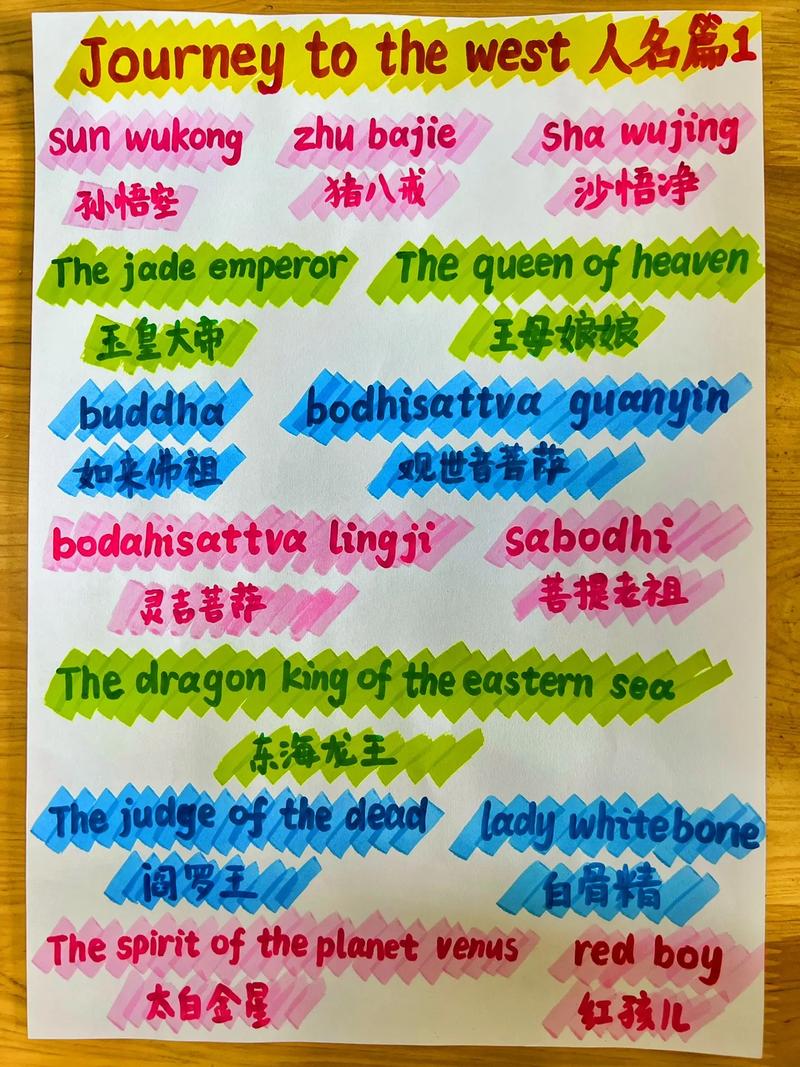 Journey to the west 人名篇1
sun wukong zhu bajie sha wujing
孙悟空 猪八戒 沙悟净
The jade emperor The queen of heaven
玉皇大帝 王母娘娘
buddha bodhisattva guanyin
如来佛祖 观世音菩萨
bodahisattva lingji sabodhi
灵吉菩萨 菩提老祖
The dragon king of the eastern sea
东海龙王
The judge of the dead lady whitebone
阎罗王 白骨精
The spirit of the planet venus red boy
太白金星 红孩儿